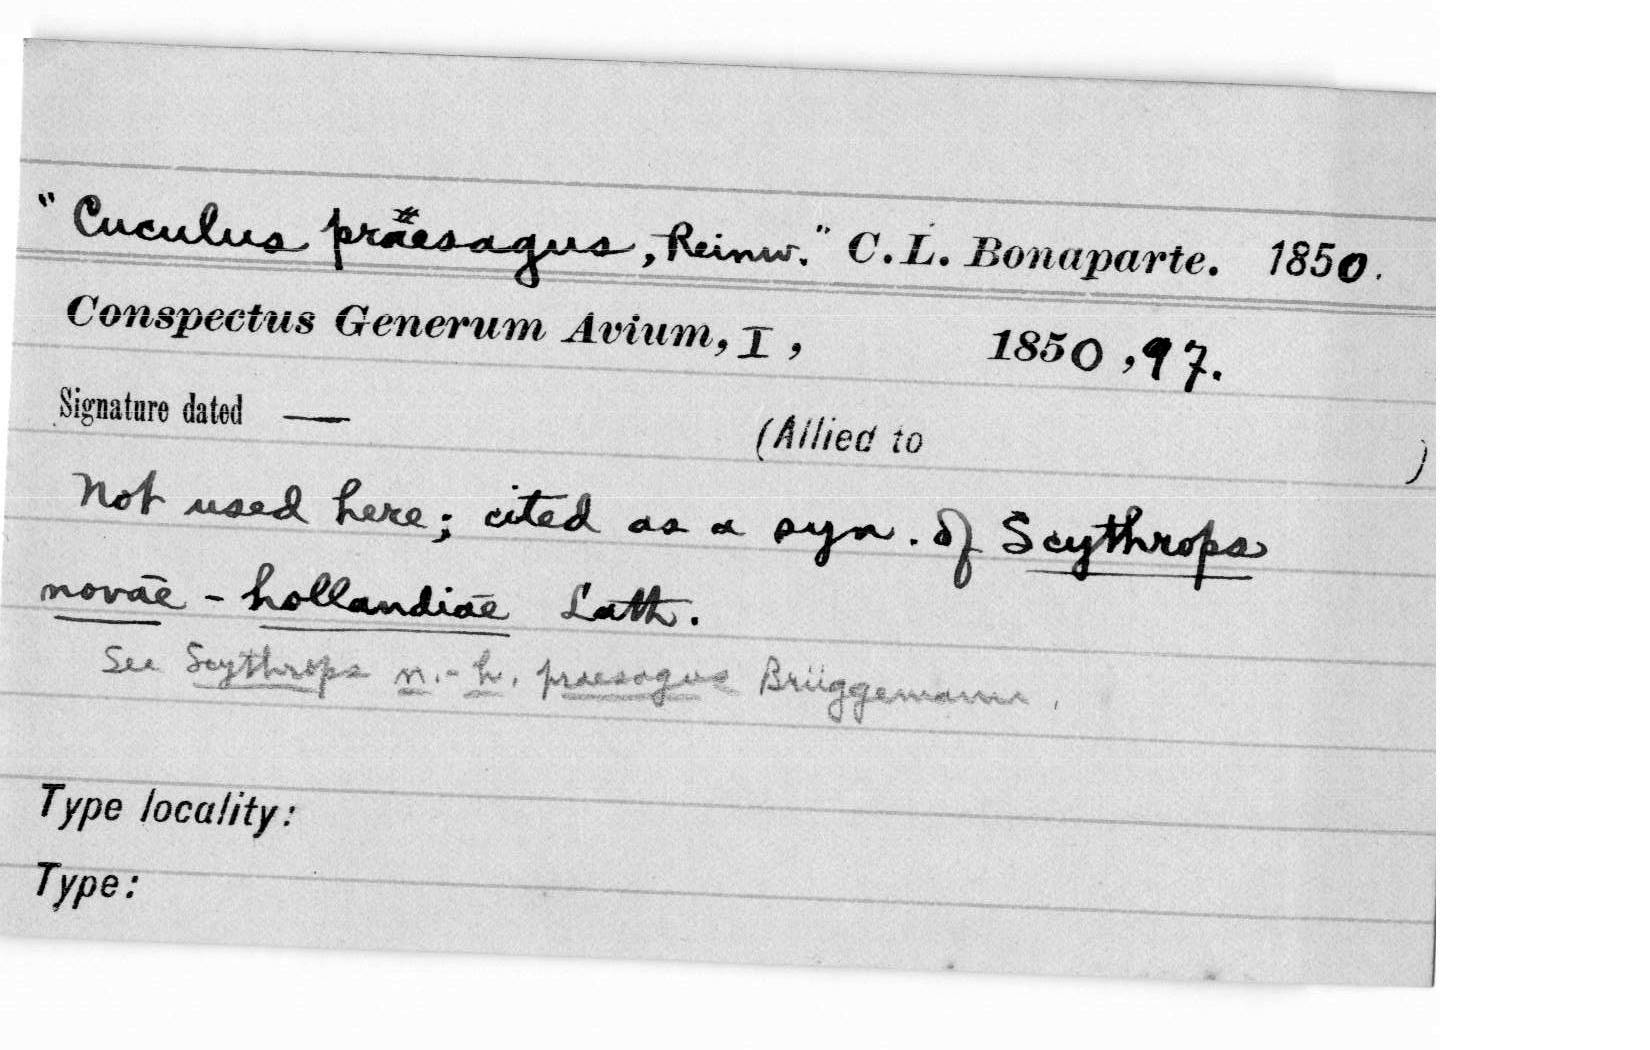 "Cuculus praesagus, Reinw." C. L. Bonaparte. 1850.
Conspectus Generum Avium, I, 1850, 97.
Signature dated — (Allied to )
Not used here; cited as a syn. of Scythrops
novae-hollandiae Lath.
See Scythrops n.-h. praesagus Brüggemann.
Type locality:
Type: